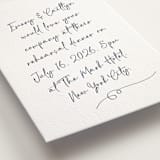 Emory & Caitlyn
would love your
company at their
rehearsal dinner on
July 16, 2026, 5pm
at The Mark Hotel,
New York City